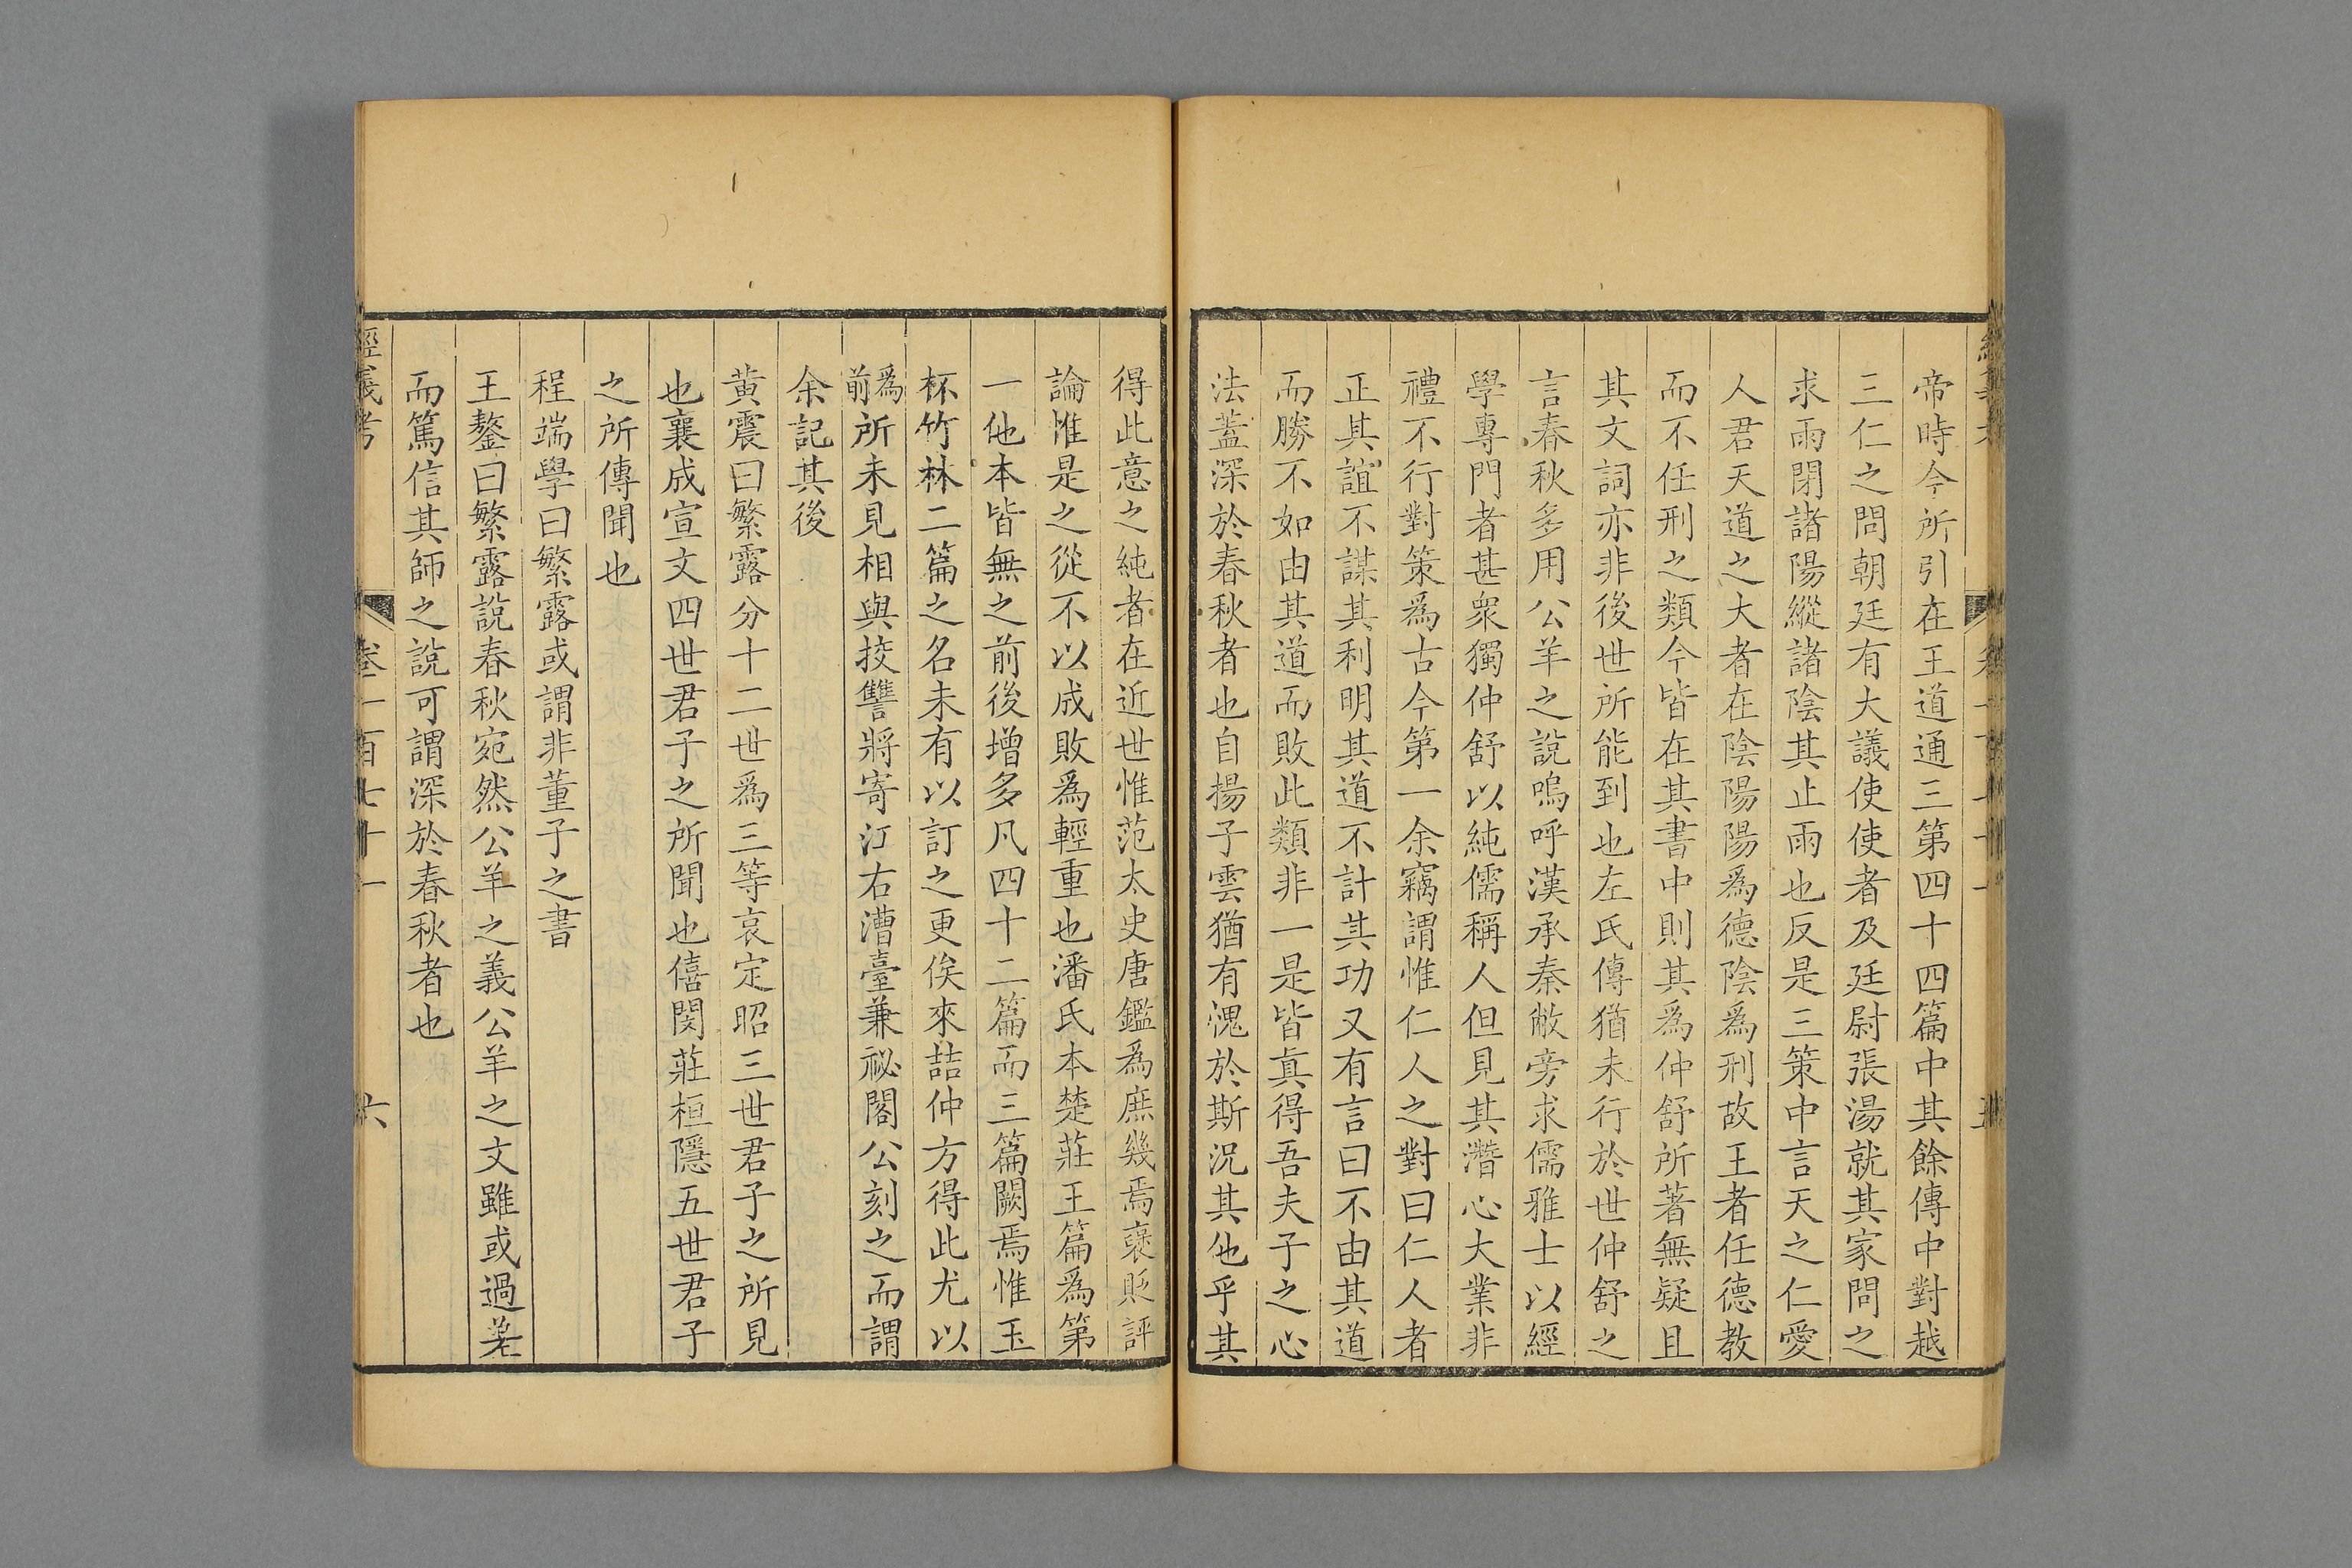 帝時今所引在王道通三第四十四篇中其餘傳中對越
三仁之問朝廷有大議使使者及廷尉張湯就其家問之
求雨閉諸陽縱諸陰其止雨也反是三策中言天之仁愛
人君天道之大者在陰陽陽爲德陰爲刑故王者任德教
而不任刑之類今皆在其書中則其爲仲舒所著無疑且
其文詞亦非後世所能到也左氏傳猶未行於世仲舒之
言春秋多用公羊之說嗚呼漢承秦敝旁求儒雅士以經
學專門者甚衆獨仲舒以純儒稱人但見其潛心大業非
禮不行對策爲古今第一余竊謂惟仁人之對曰仁人者
正其誼不謀其利明其道不計其功又有言曰不由其道
而勝不如由其道而敗此類非一是皆眞得吾夫子之心
法蓋深於春秋者也自揚子雲猶有愧於斯況其他乎其
得此意之純者在近世惟范太史唐鑑爲庶幾焉襃貶評
論惟是之從不以成敗爲輕重也潘氏本楚莊王篇爲第
一他本皆無之前後增多凡四十二篇而三篇闕焉惟玉
杯竹林二篇之名未有以訂之更俟來喆仲方得此尤以
爲前所未見相與挍讐將寄江右漕臺兼祕閣公刻之而謂
余記其後
黄震曰繁露分十二世爲三等哀定昭三世君子之所見
也襄成宣文四世君子之所聞也僖閔莊桓隱五世君子
之所傳聞也
程端學曰繁露或謂非董子之書
王鏊曰繁露說春秋宛然公羊之義公羊之文雖或過差
而篤信其師之說可謂深於春秋者也
經義考 卷一百七十一 六